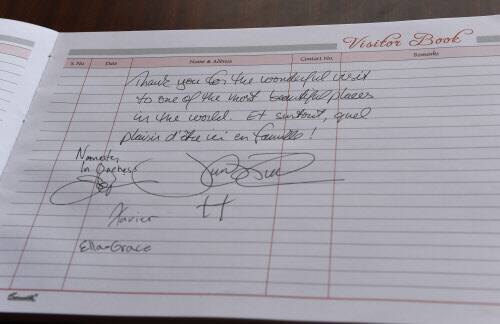 Visitor Book
S. No Date Name & Address Contact No. Remarks
Thank you for the wonderful visit
to one of the most beautiful places
in the world. Et surtout, quel
plaisir d'être ici en famille!
Xavier
Ella-Grace